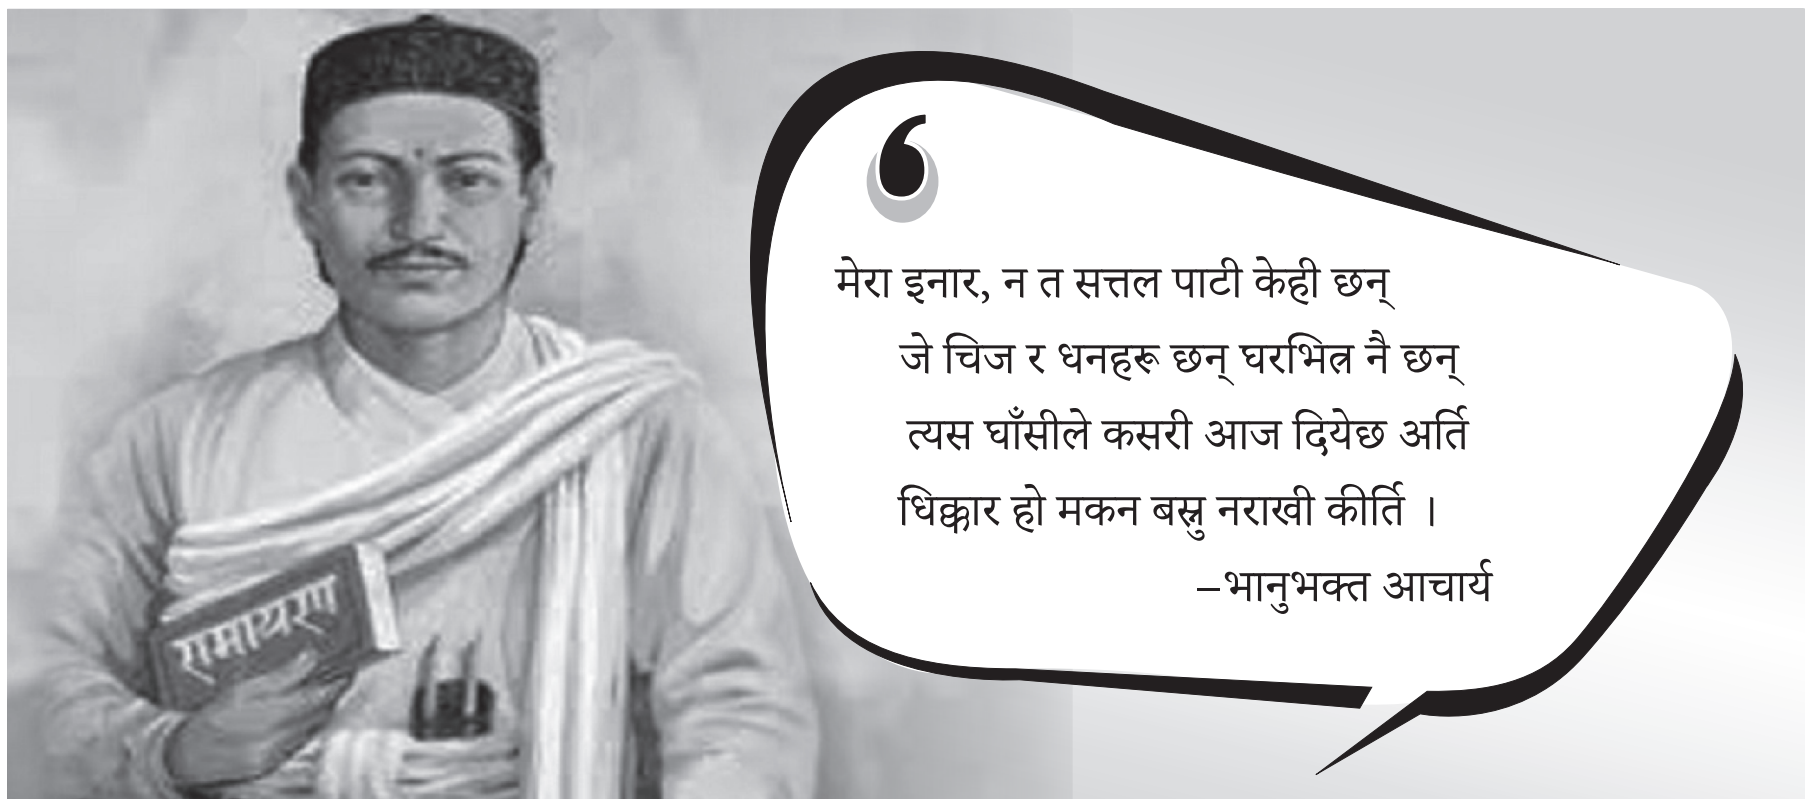 मेरा इनार, न त सत्तल पाटी केही छन्
जे चिज र धनहरू छन् घरभित्र नै छन्
त्यस घाँसीले कसरी आज दियेछ अर्ति
धिक्कार हो मकन बस्नु नराखी कीर्ति ।
–भानुभक्त आचार्य
रामायण